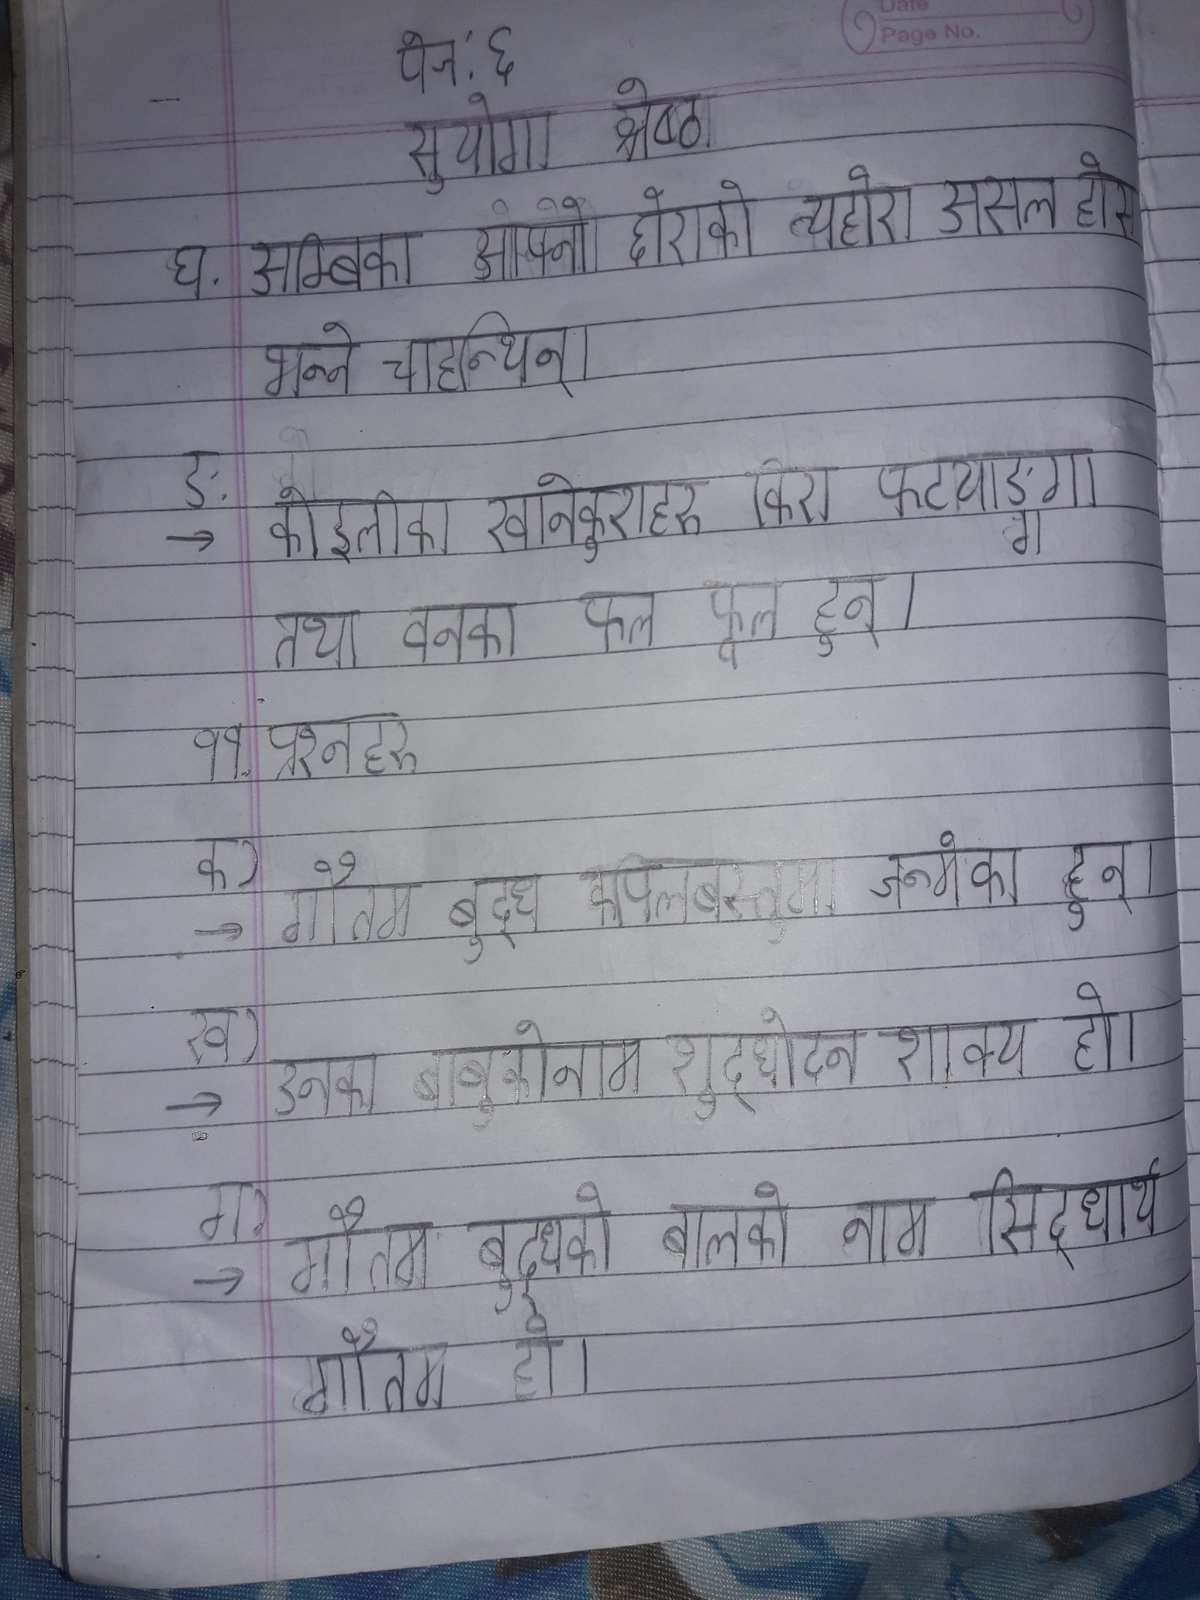 Date
Page No.
पेज: ६
सुयोगा श्रेष्ठ
घ. अम्बिका आफ्नो छोराको त्यहोरा असल होस
भन्ने चाहन्थिन्।
ङ.
→ कोइलीका खानेकुराहरु किरा फटयाङ्गा
ग
तथा वनका फल फूल हुन्।
११. प्रश्नहरु
क)
→ गौतम बुद्ध कपिलबस्तुमा जन्मेका हुन्।
ख)
→ उनका बाबुकोनाम शुद्धोदन शाक्य हो।
ग)
→ गौतम बुद्धको बालको नाम सिद्धार्थ
गौतम हो।